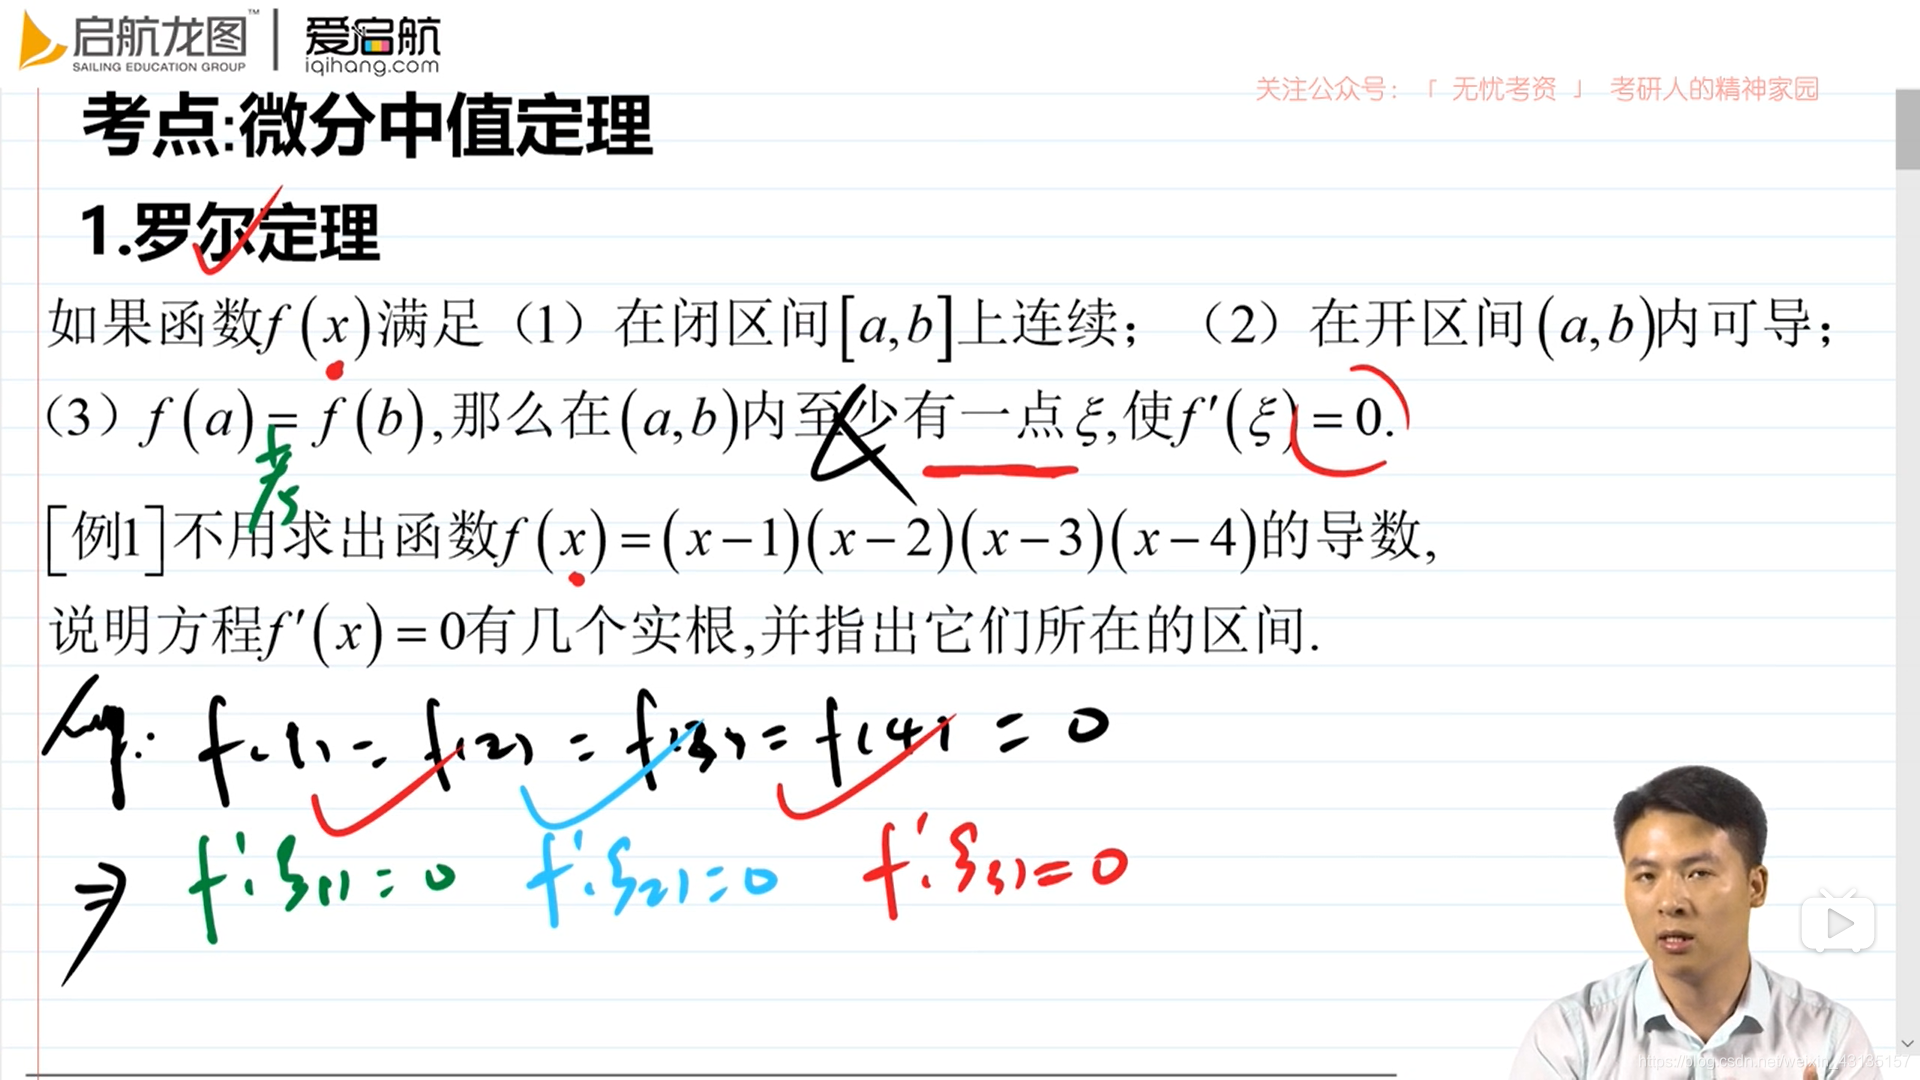 启航龙图™ 爱启航
SAILING EDUCATION GROUP iqihang.com
关注公众号：「 无忧考资 」 考研人的精神家园
考点:微分中值定理
1.罗尔定理
如果函数f(x)满足（1）在闭区间[a,b]上连续；（2）在开区间(a,b)内可导；
（3）f(a)=f(b),那么在(a,b)内至少有一点ξ,使f′(ξ)=0.
考
[例1]不用求出函数f(x)=(x−1)(x−2)(x−3)(x−4)的导数,
说明方程f′(x)=0有几个实根,并指出它们所在的区间.
f(1)=f(2)=f(3)=f(4)=0
⇒ f′(ξ1)=0 f′(ξ2)=0 f′(ξ3)=0
https://blog.csdn.net/weixin_43135157